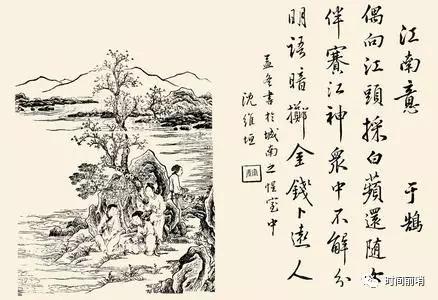 江南意 于鵠
偶向江頭採白蘋還隨女
伴賽江神衆中不解分
明語暗擲金錢卜遠人
孟冬書於城南之惺室中
沈維垣
时间前哨